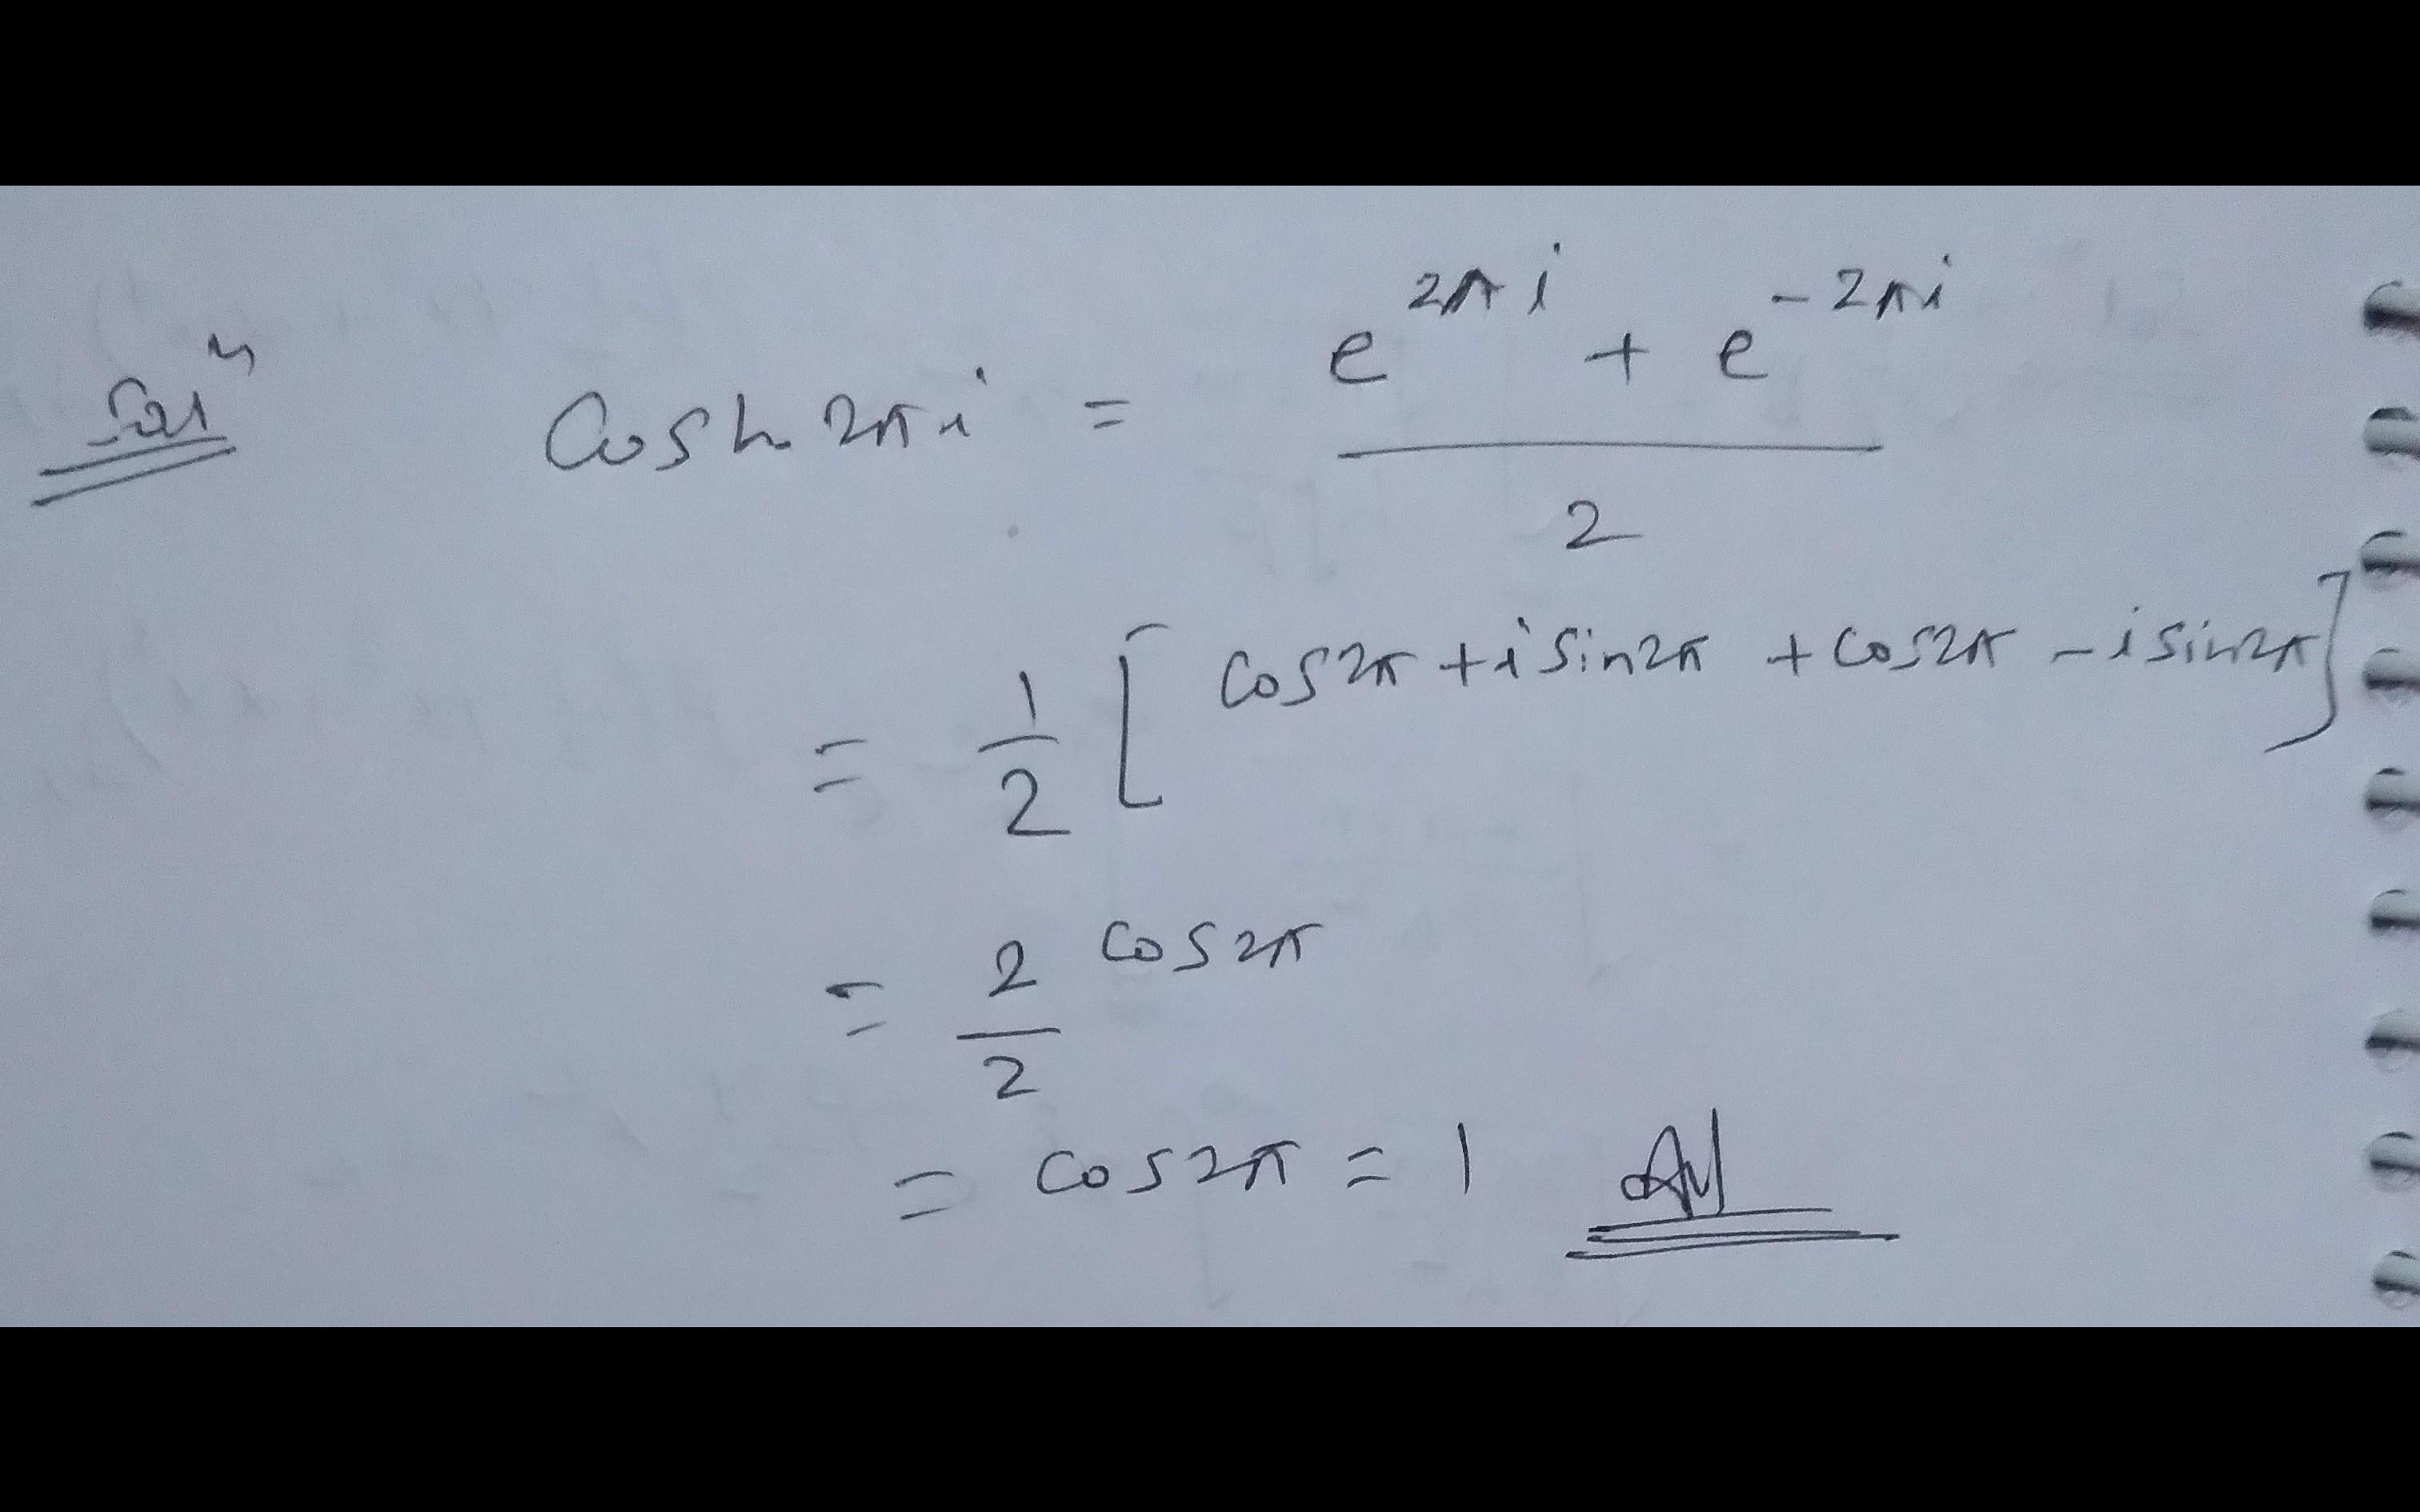 Solⁿ cosh 2πi = (e^{2πi} + e^{-2πi}) / 2
= 1/2 [cos2π + i sin2π + cos2π - i sin2π]
= 2/2 cos2π
= cos2π = 1